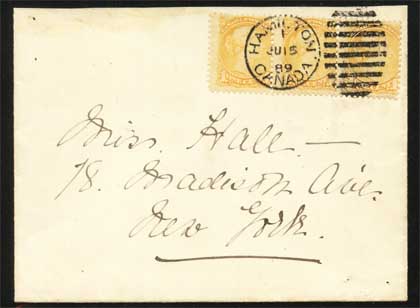 HAMILTON
1
JU 15
89
CANADA
Miss. Hall —
18. Madison Ave.
New York.